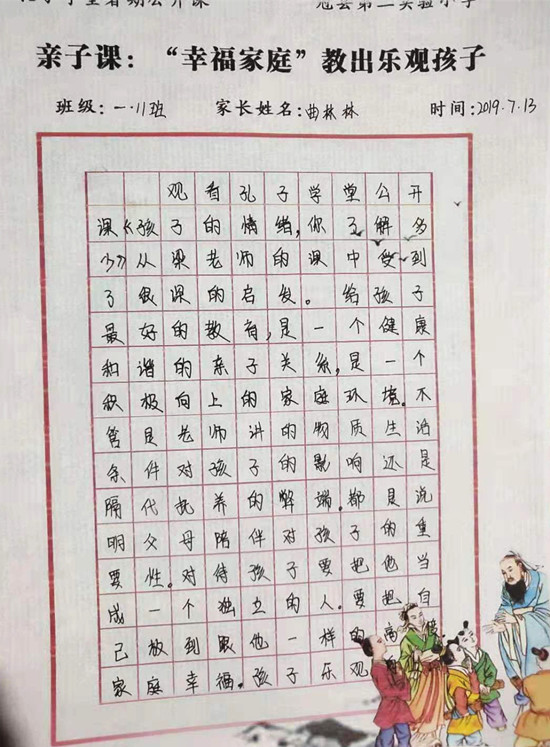 暑期公开课 冠县第二实验小学
亲子课：“幸福家庭”教出乐观孩子
班级：一.11班 家长姓名：曲林林 时间：2019.7.13
观看孔子学堂公开
课《孩子的情绪,你了解多
少》从梁老师的课中受到
了很深的启发。给孩子
最好的教育,是一个健康
和谐的亲子关系,是一个
积极向上的家庭环境。不
管是老师讲的物质生活
条件对孩子的影响还是
隔代抚养的弊端。都是说
明父母陪伴对孩子的重
要性。对待孩子要把他当
成一个独立的人。要把自
己放到跟他一样的高
家庭幸福。孩子乐观